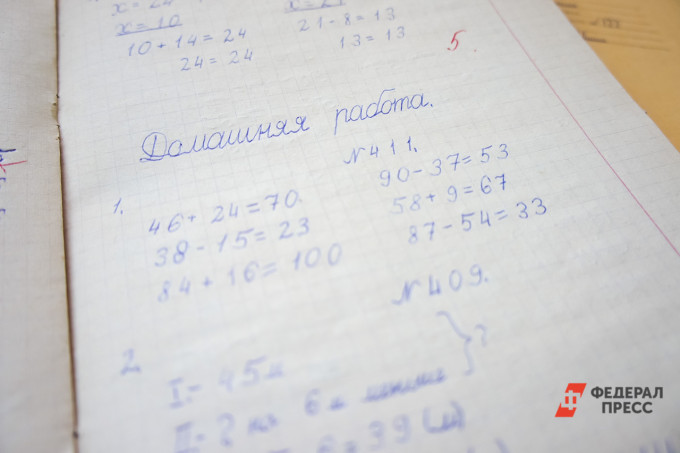 x = 24
x = 10
10 + 14 = 24
24 = 24
x = 21
21 - 8 = 13
13 = 13
5.
Домашняя работа.
№ 411.
1.
46 + 24 = 70.
38 - 15 = 23
84 + 16 = 100
90 - 37 = 53
58 + 9 = 67
87 - 54 = 33
№ 409.
2.
I. - 45 м
II. - ? на 6 м меньше } ?
6 = 39 (м)
ФЕДЕРАЛ
ПРЕСС